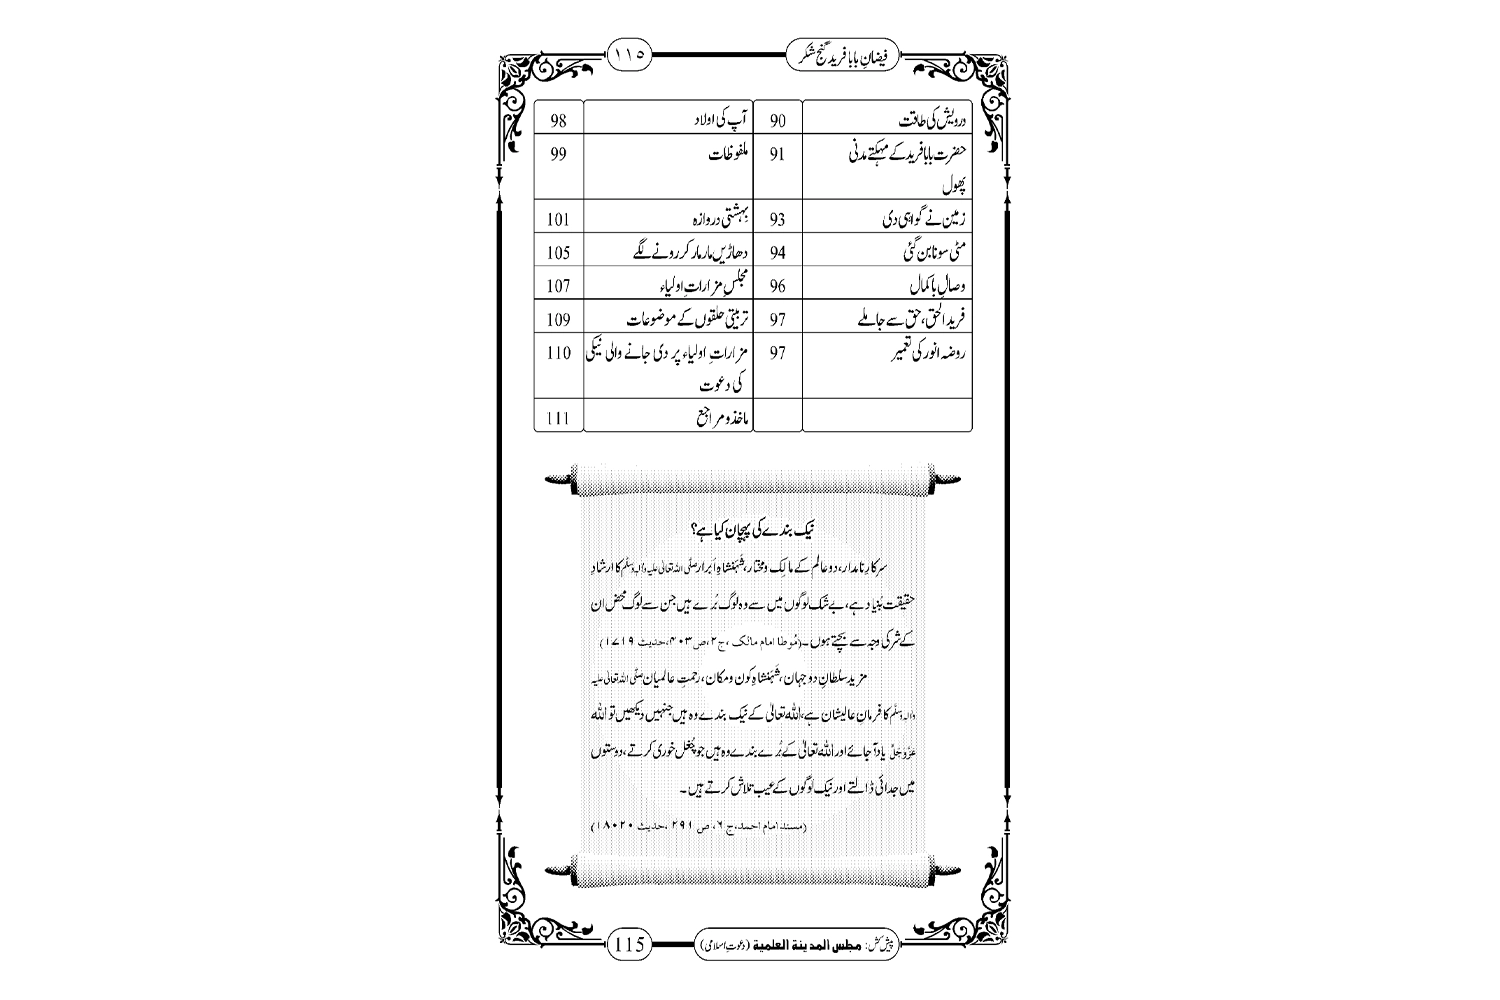 فیضانِ بابا فرید گنج شکر
۱۱۵
درویش کی طاقت 90 آپ کی اولاد 98
حضرت بابا فرید کے مہکتے مدنی 91 ملفوظات 99
پھول
زمین نے گواہی دی 93 بہشتی دروازہ 101
مٹی سونا بن گئی 94 دھاڑیں مار مار کر رونے لگے 105
وصالِ باکمال 96 مجلسِ مزاراتِ اولیاء 107
فرید الحق، حق سے جا ملے 97 تربیتی حلقوں کے موضوعات 109
روضہ انور کی تعمیر 97 مزاراتِ اولیاء پر دی جانے والی نیکی 110
کی دعوت
ماخذ و مراجع 111
نیک بندے کی پہچان کیا ہے؟
سرکارِ نامدار، دو عالم کے مالِک و مختار، شَہَنشاہِ اَبرار صلَّی اللہ تعالیٰ علیہ واٰلہٖ وسلَّم کا ارشادِ
حقیقت بُنیاد ہے، بے شک لوگوں میں سے وہ لوگ بُرے ہیں جن سے لوگ محض ان
کے شر کی وجہ سے بچتے ہوں۔ (مُوطا امام مالک ،ج۲،ص۴۰۳،حدیث ۱۷۱۹)
مزید سلطانِ دو جہان، شَہَنشاہِ کون و مکان، رحمتِ عالمیان صلَّی اللہ تعالیٰ علیہ
واٰلہٖ وسلَّم کا فرمانِ عالیشان ہے، اللہ تعالیٰ کے نیک بندے وہ ہیں جنہیں دیکھیں تو اللہ
عَزَّوَجَلَّ یاد آ جائے اور اللہ تعالیٰ کے بُرے بندے وہ ہیں جو چُغل خوری کرتے، دوستوں
میں جدائی ڈالتے اور نیک لوگوں کے عیب تلاش کرتے ہیں۔
(مسند امام احمد،ج ۶، ص ۲۹۱ ،حدیث ۱۸۰۲۰)
پیش کش: مجلس المدینة العلمیة (دعوتِ اسلامی)
115